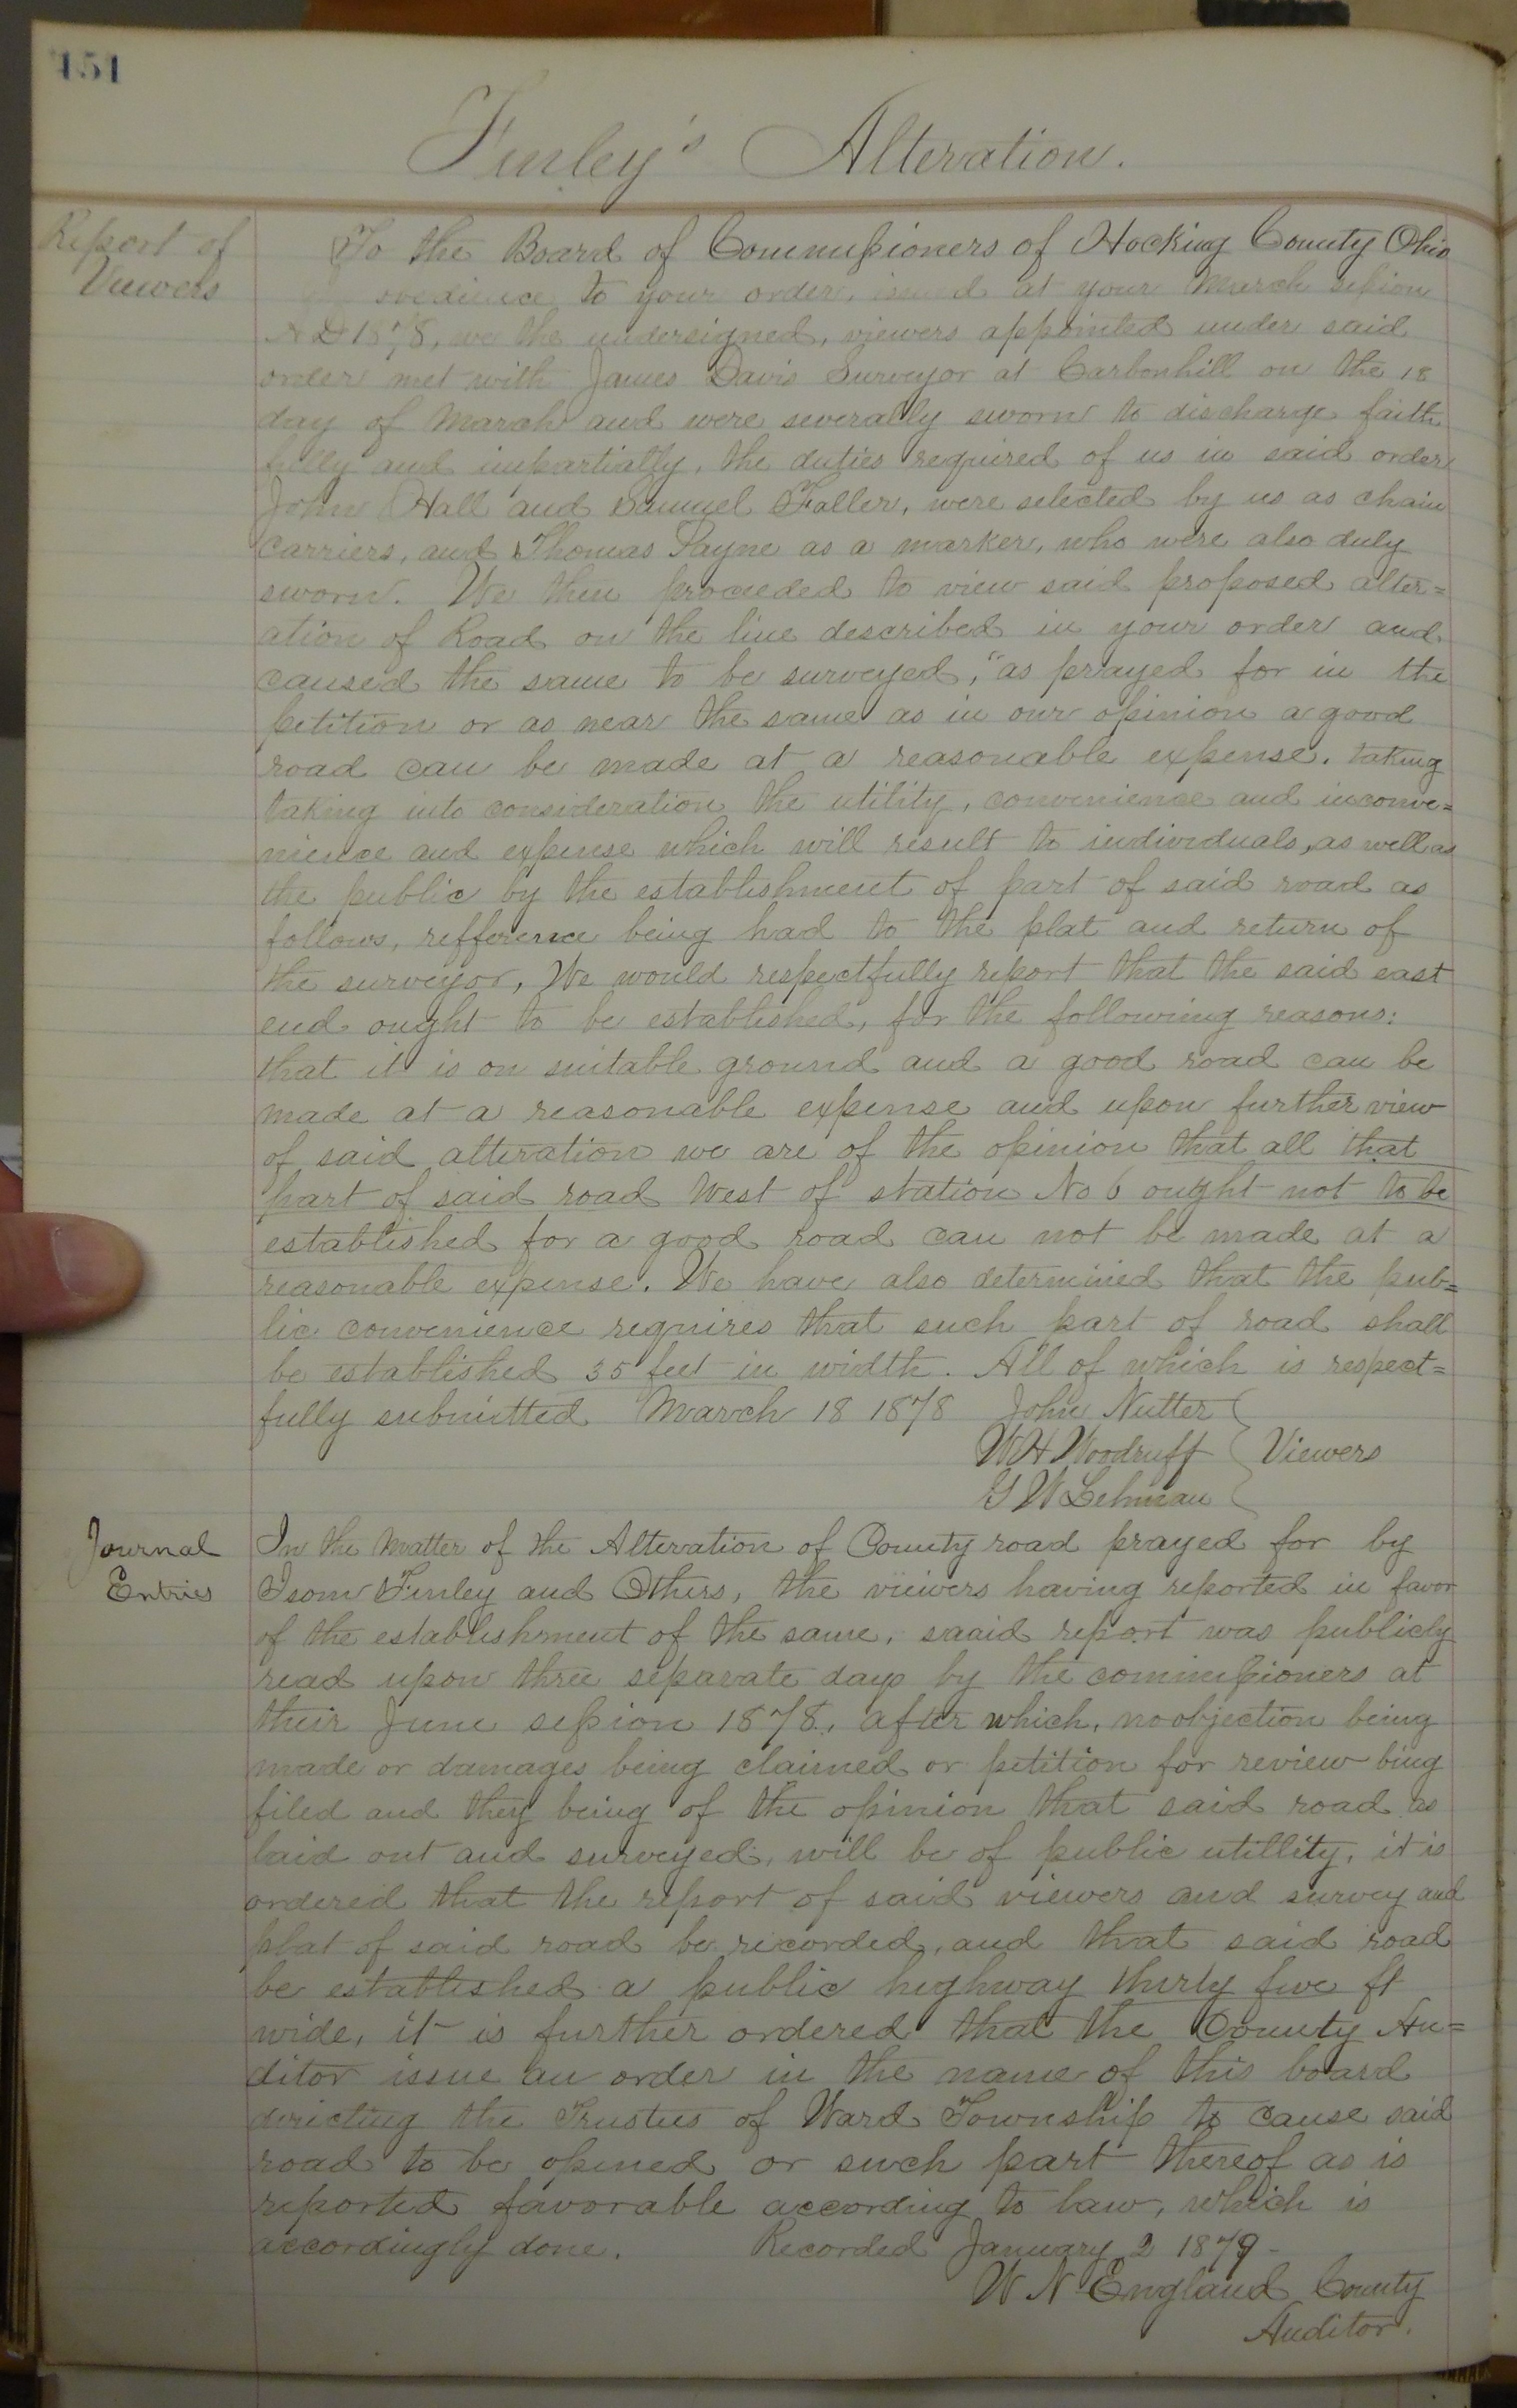 151
Finley's Alteration.
Report of
Viewers
To the Board of Commissioners of Hocking County Ohio
obedience to your order, issued at your March session
A D 1878, we the undersigned, viewers appointed under said
order met with James Davis Surveyor at Carbonhill on the 18
day of March and were severally sworn to discharge faith
fully and impartially, the duties required of us in said order
John Hall and Samuel Faller, were selected by us as chain
carriers, and Thomas Payne as a marker, who were also duly
sworn. We then proceeded to view said proposed alter=
ation of Road on the line described in your order and
caused the same to be surveyed, "as prayed for in the
petition or as near the same as in our opinion a good
road can be made at a reasonable expense. taking
taking into consideration the utility, convenience and inconve=
nience and expense which will result to individuals, as well as
the public by the establishment of part of said road as
follows, refference being had to the plat and return of
the surveyor, We would respectfully report that the said east
end ought to be established, for the following reasons:
that it is on suitable ground and a good road can be
made at a reasonable expense and upon further view
of said alteration we are of the opinion that all that
part of said road West of station No 6 ought not to be
established for a good road can not be made at a
reasonable expense. We have also determined that the pub=
lic convenience requires that such part of road shall
be established 35 feet in width. All of which is respect=
fully submitted March 18 1878 John Nutter
W H Woodruff Viewers
G W Lehman
Journal
Entries
In the Matter of the Alteration of County road prayed for by
Isom Finley and Others, the viewers having reported in favor
of the establishment of the same, saaid report was publicly
read upon three separate days by the commissioners at
their June session 1878, after which, no objection being
made or damages being claimed or petition for review bing
filed and they being of the opinion that said road as
laid out and surveyed, will be of public utillity, it is
ordered that the report of said viewers and survey and
plat of said road be recorded, and that said road
be established a public highway thirty five ft
wide, it is further ordered that the County Au=
ditor issue an order in the name of this board
directing the Trustees of Ward Township to cause said
road to be opened or such part thereof as is
reported favorable according to law, which is
accordingly done. Recorded January 2 1879-
W N England County
Auditor.